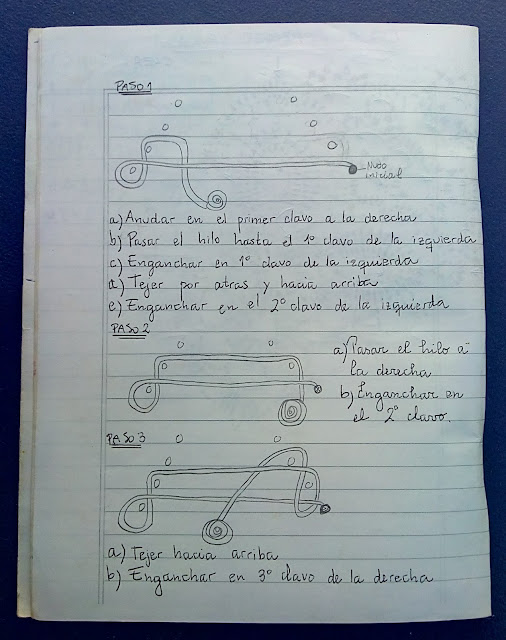 PASO 1
Nudo
inicial
a) Anudar en el primer clavo a la derecha
b) Pasar el hilo hasta el 1º clavo de la izquierda
c) Enganchar en 1º clavo de la izquierda
d) Tejer por atras y hacia arriba
e) Enganchar en el 2º clavo de la izquierda
PASO 2
a) Pasar el hilo a
la derecha
b) Enganchar en
el 2º clavo.
PASO 3
a) Tejer hacia arriba
b) Enganchar en 3º clavo de la derecha